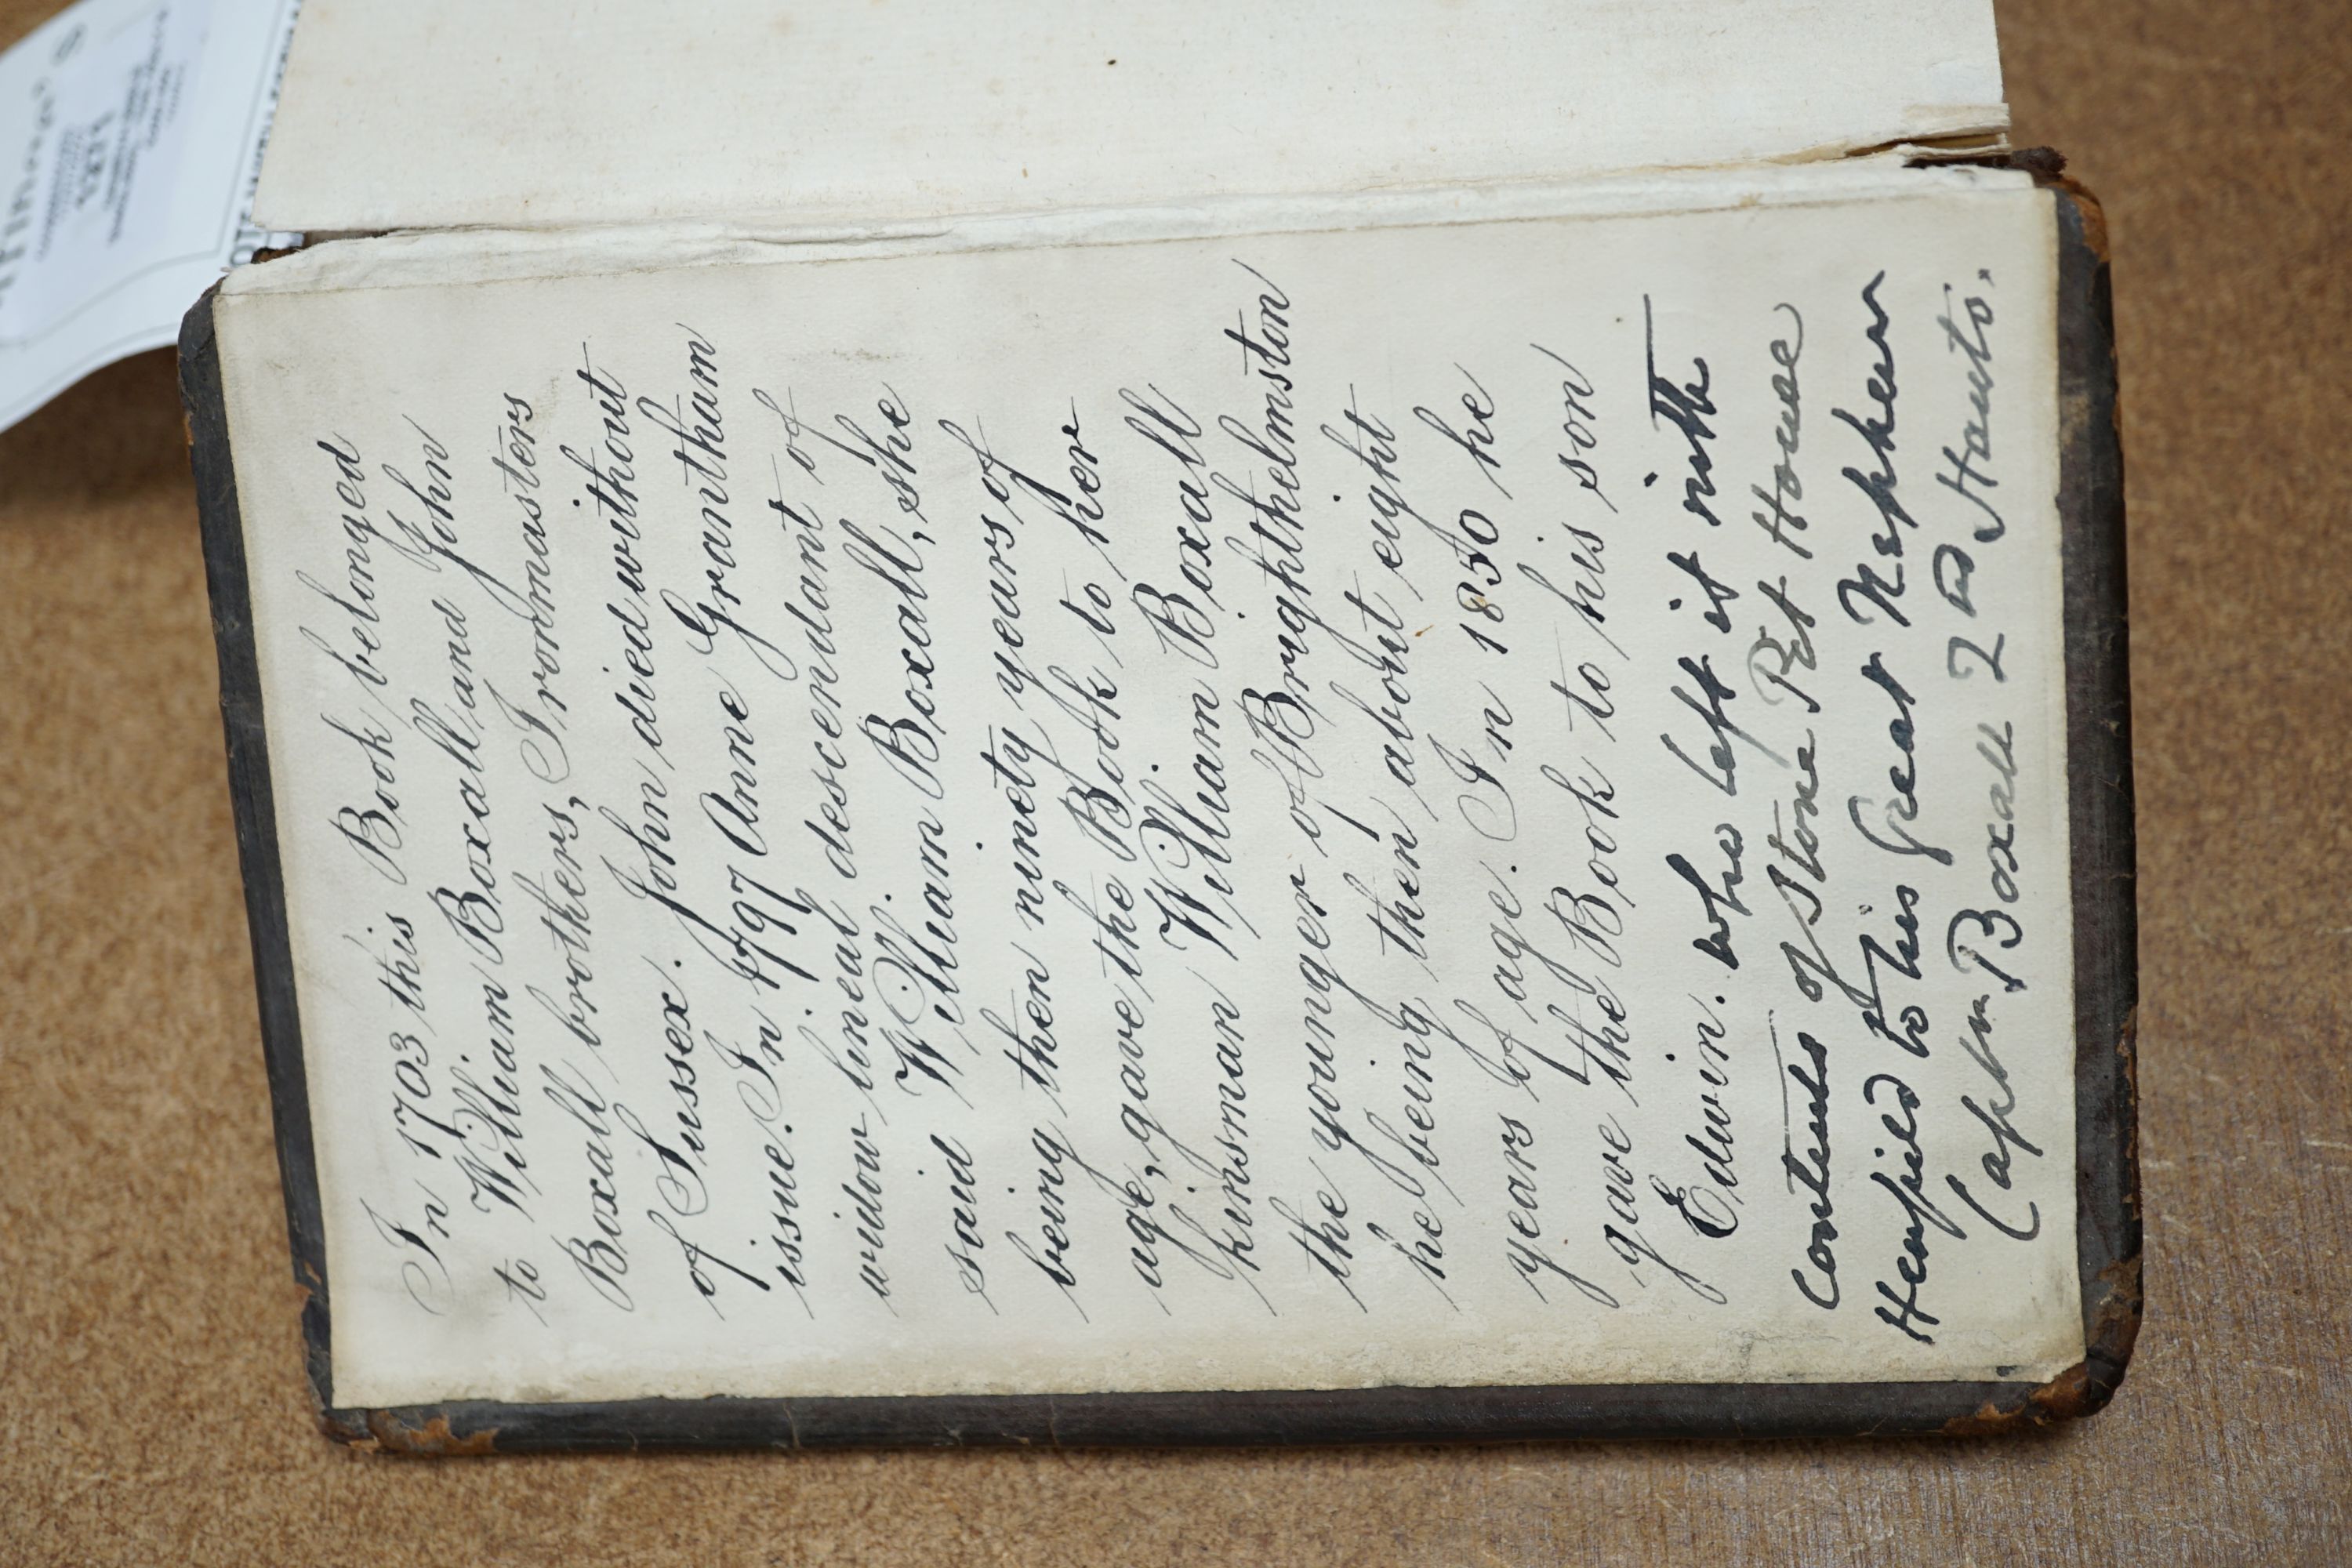 In 1703 this Book belonged
to William Boxall and John
Boxall brothers, Ironmasters
of Sussex. John died without
issue. In 1797 Anne Grantham
widow lineal descendant of
said William Boxall, she
being then ninety years of
age, gave the Book to her
kinsman William Boxall
the younger of Brighthelmston
he being then about eight
years of age. In 1850 he
gave the Book to his son
Edwin. who left it with
Contents of Stone Pit House
Henfield to his Great Nephew
Captn. Boxall 2nd Hants.